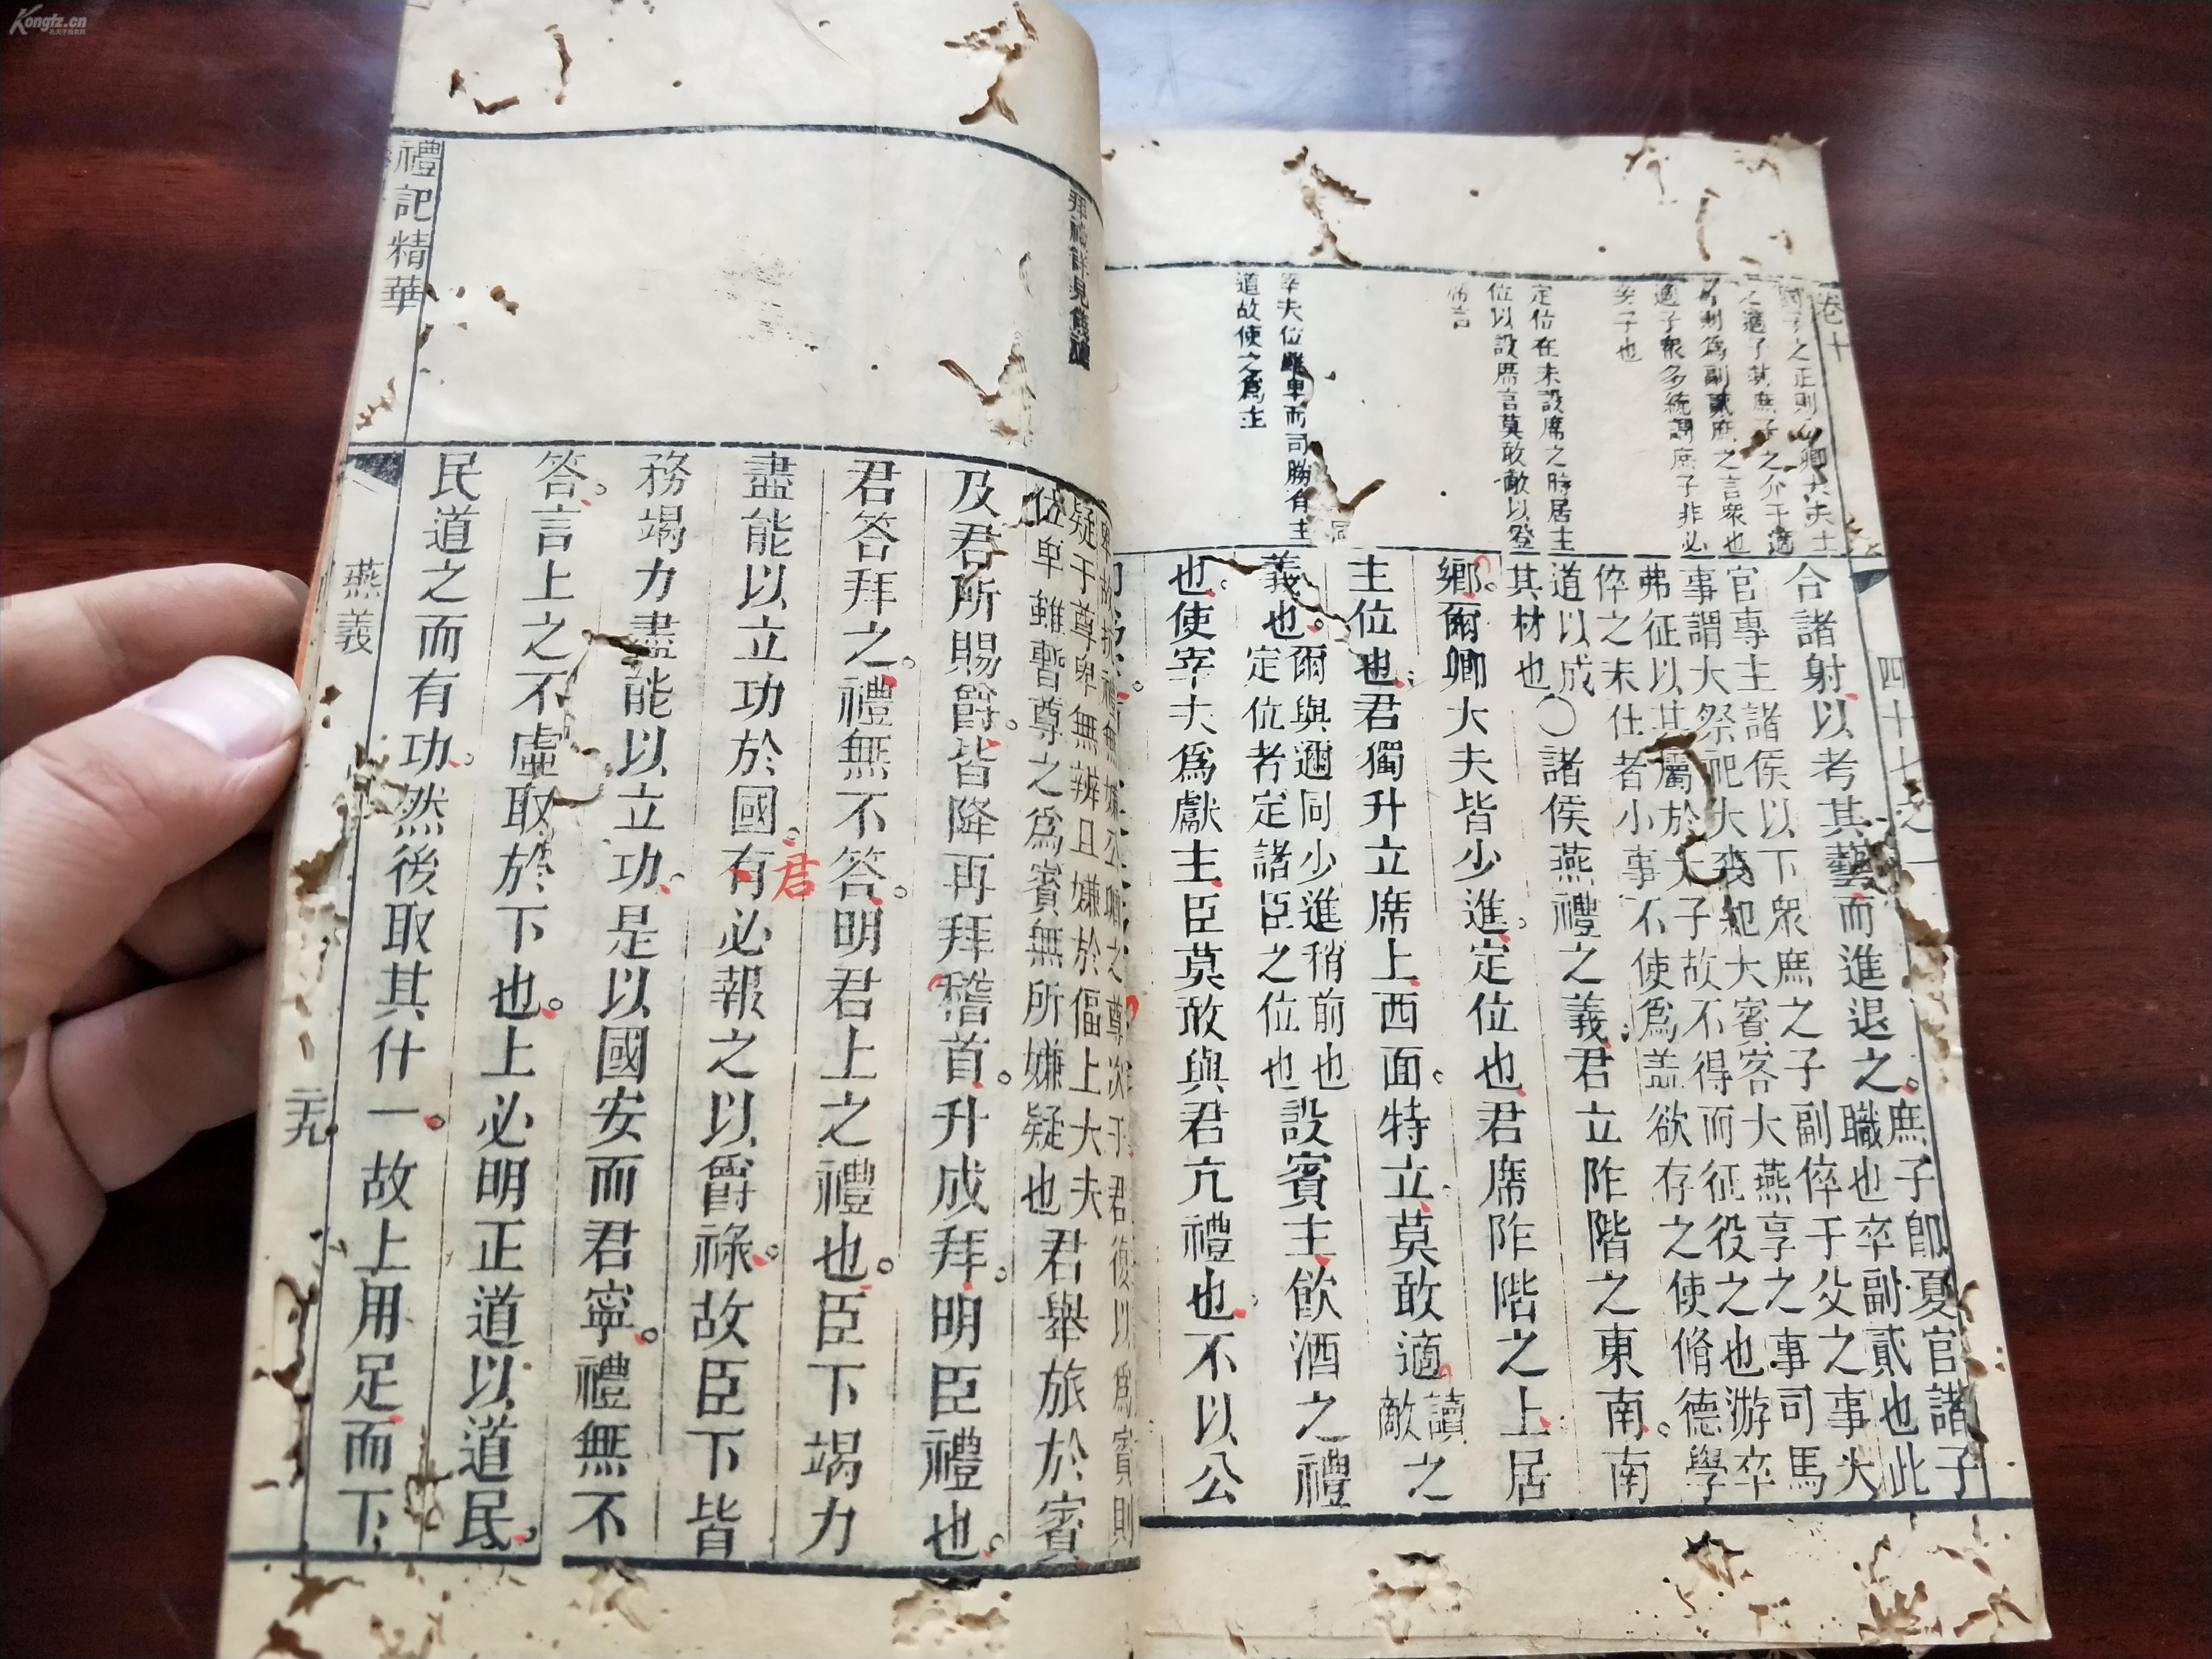 Kongfz.cn
卷十
四十七之一
之正則公卿大夫士
之適子其庶子之介于適
者則為副貳庶之言衆也
適子衆多統謂庶子非必
妾子也
定位在未設席之時居主
位以設席言莫敢敵以登
席言
宰夫位雖卑而司膳有主
道故使之為主
合諸射以考其藝而進退之。庶子卽夏官諸子
職也卒副貳也此
官專主諸侯以下衆庶之子副倅于父之事大
事謂大祭祀大喪紀大賓客大燕享之事司馬
弗征以其屬於太子故不得而征役之也游卒
倅之未仕者小事不使爲盖欲存之使脩德學
道以成
其材也○諸侯燕禮之義君立阼階之東南。南
鄉。爾卿大夫皆少進。定位也君席阼階之上居
主位也。君獨升立席上西面。特立莫敢適讀
敵之
義也。爾與邇同少進稍前也
定位者定諸臣之位也設賓主飲酒之禮
也。使宰夫爲獻主臣莫敢與君亢禮也。不以公
疑于尊卑無辨且嫌於偪上大夫
位卑雖暫尊之爲賓無所嫌疑也君舉旅於賓
及君所賜爵。皆降再拜稽首。升成拜。明臣禮也。
君答拜之。禮無不答。明君上之禮也。臣下竭力
盡能以立功於國。君
有必報之以爵祿。故臣下皆
務竭力盡能以立功。是以國安而君寧。禮無不
答。言上之不虛取於下也。上必明正道以道民。
民道之而有功。然後取其什一。故上用足而下
禮記精華
燕義
元